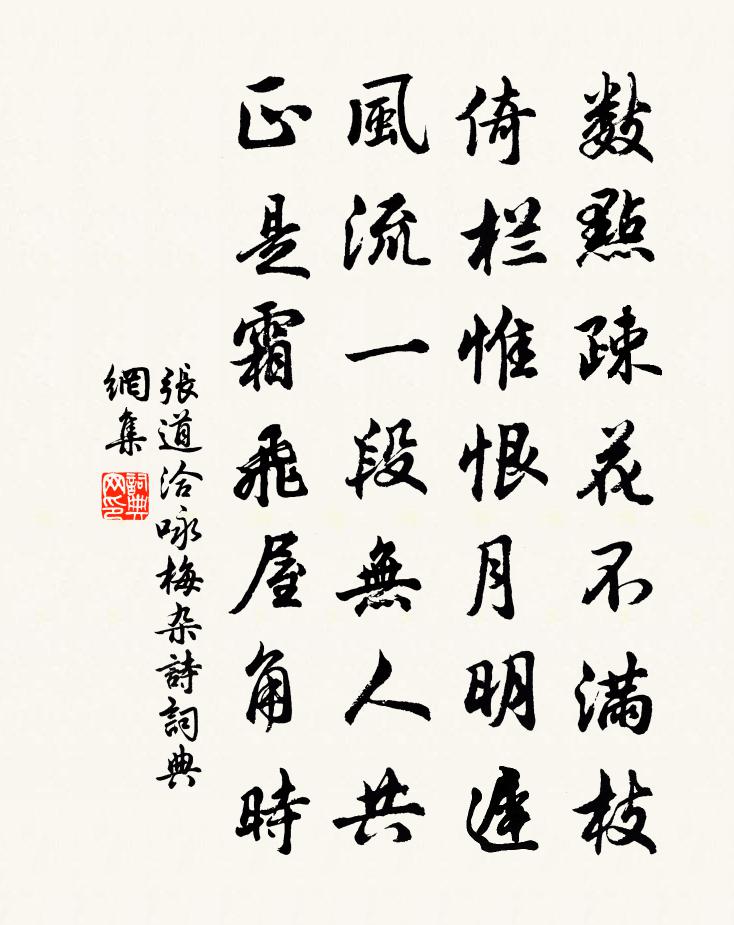 数點疎花不滿枝
倚栏惟恨月明遲
風流一段無人共
正是霜飛屋角時
張道洽咏梅杂詩詞典
網集
詞典网印